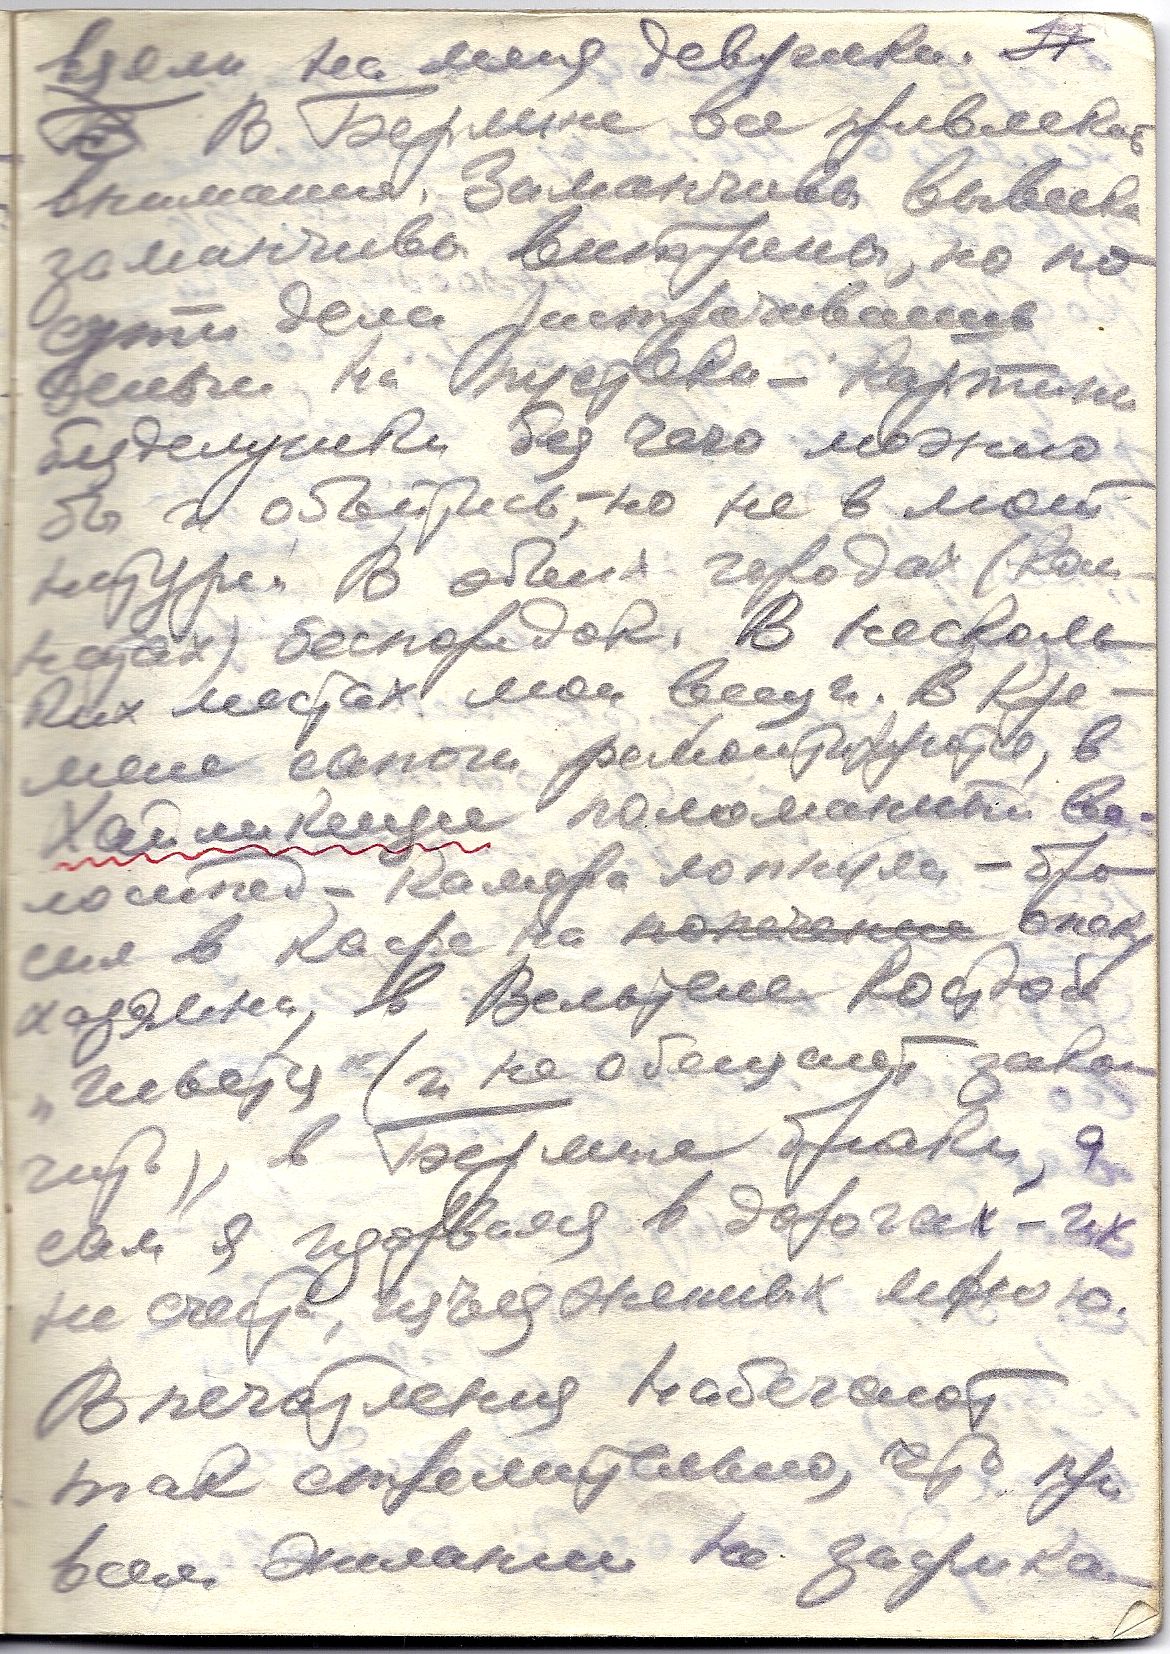 взяли на меня девушки.
В Берлине все привлекает
внимание. Заманчивы вывески
заманчивы витрины, но по
сути дела растрачиваешь
деньги на пустяки – картины
безделушки без чего можно
бы и обойтись, – но не в моей
натуре. В обеих городах (ком-
натах) беспорядок. В несколь-
ких местах мои вещи. В Кре-
мене сапоги ремонтируются, в
Хайликензее поломанный ве-
лосипед – камера лопнула – бро
сил в кафе на попечение опеку
хозяина, в Вельтене костюм
"шьется" (и не обещают закон
чить), в Берлине брюки, а
сам я изорвался в дорогах – их
не счесть, изъезженных мною.
Впечатления набегают
так стремительно, что при
всем желании не зафикси